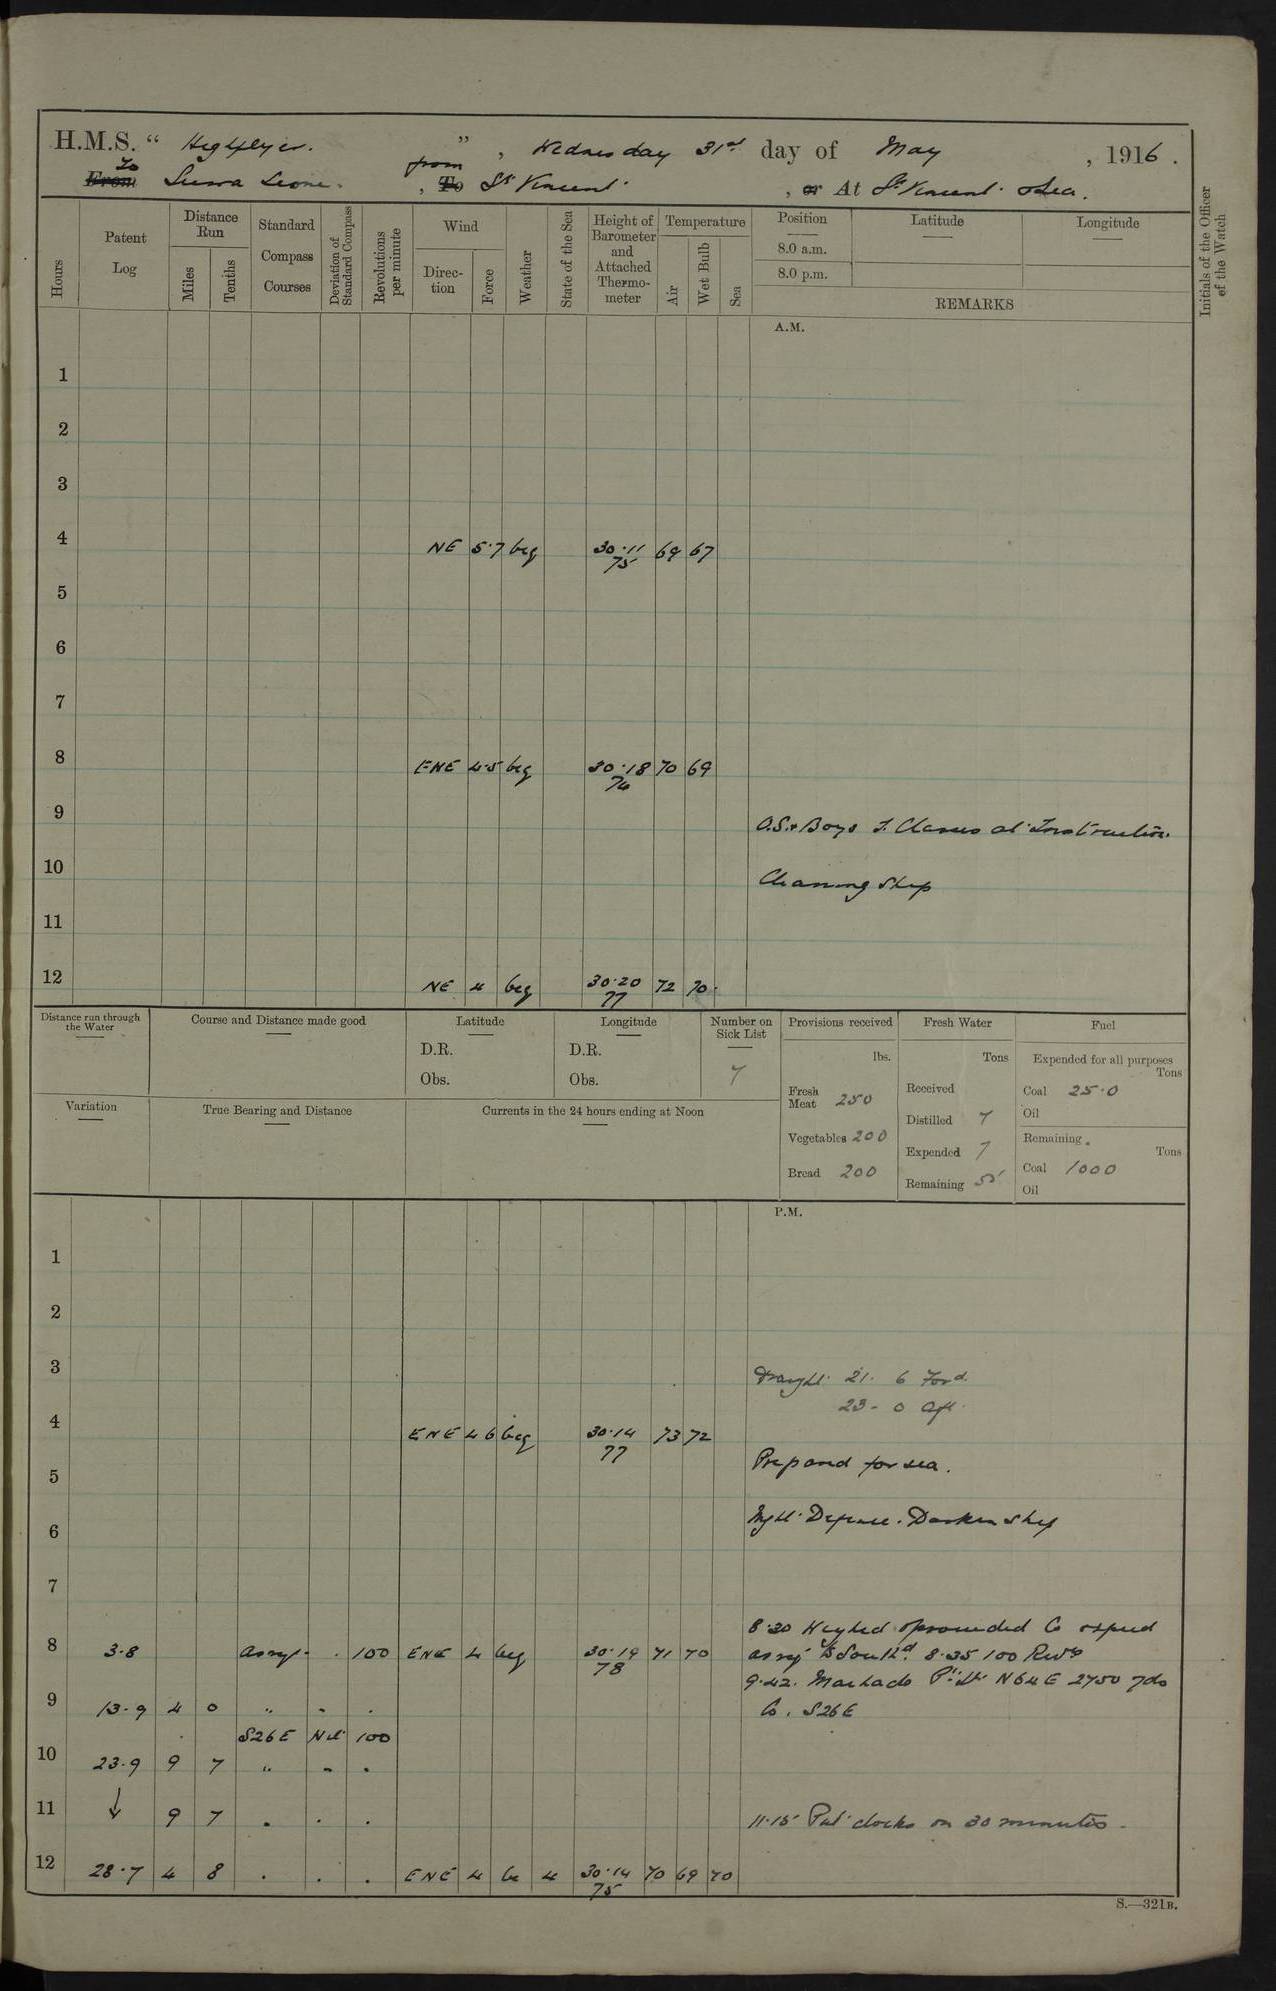 H.M.S. “ Highflyer. ”, Wednesday 31st day of May, 1916.
From To Sierra Leone. , To from St Vincent , or At St Vincent & Sea.
Hours
Patent Log
Distance Run
Miles
Tenths
Standard Compass Courses
Deviation of Standard Compass
Revolutions per minute
Wind
Direction
Force
Weather
State of the Sea
Height of Barometer and Attached Thermometer
Temperature
Air
Wet Bulb
Sea
Position
8.0 a.m.
8.0 p.m.
Latitude
Longitude
REMARKS
Initials of the Officer of the Watch
A.M.
1
2
3
4 NE 5.7 bcq 30.11 75 69 67
5
6
7
8 ENE 4.5 bcq 30.18 74 70 69
9 O.S. & Boys T. Classes at Instruction.
10 Cleaning Ship
11
12 NE 4 bcq 30.20 77 72 70.
Distance run through the Water
Course and Distance made good
Latitude
D.R.
Obs.
Longitude
D.R.
Obs.
Number on Sick List
7
Provisions received
lbs.
Fresh Meat 250
Vegetables 200
Bread 200
Fresh Water
Tons
Received
Distilled 7
Expended 7
Remaining 55
Fuel
Expended for all purposes
Tons
Coal 25.0
Oil
Remaining.
Tons
Coal 1000
Oil
Variation
True Bearing and Distance
Currents in the 24 hours ending at Noon
P.M.
1
2
3 Draught 21. 6 Ford.
23 - 0 Aft
4 ENE 4 6 bcq 30.14 77 73 72
Prepared for sea.
5
Night Defence. Darken ship
6
7
8.30 Weighed & proceeded Co & speed
8 3.8 as req - . 100 ENE 4 bcq 30.19 78 71 70 as req to Southd. 8.35 100 Revs
9.42. Machado Pt Lt N64E 2750 yds
9 13.9 4 0 " - . Co. S26E
S26E Nil 100
10 23.9 9 7 " - .
11 ↓ 9 7 . . . 11.15 Put clocks on 30 minutes.
12 28.7 4 8 . . . ENE 4 bc 4 30.14 75 70 69 70
S.—321B.